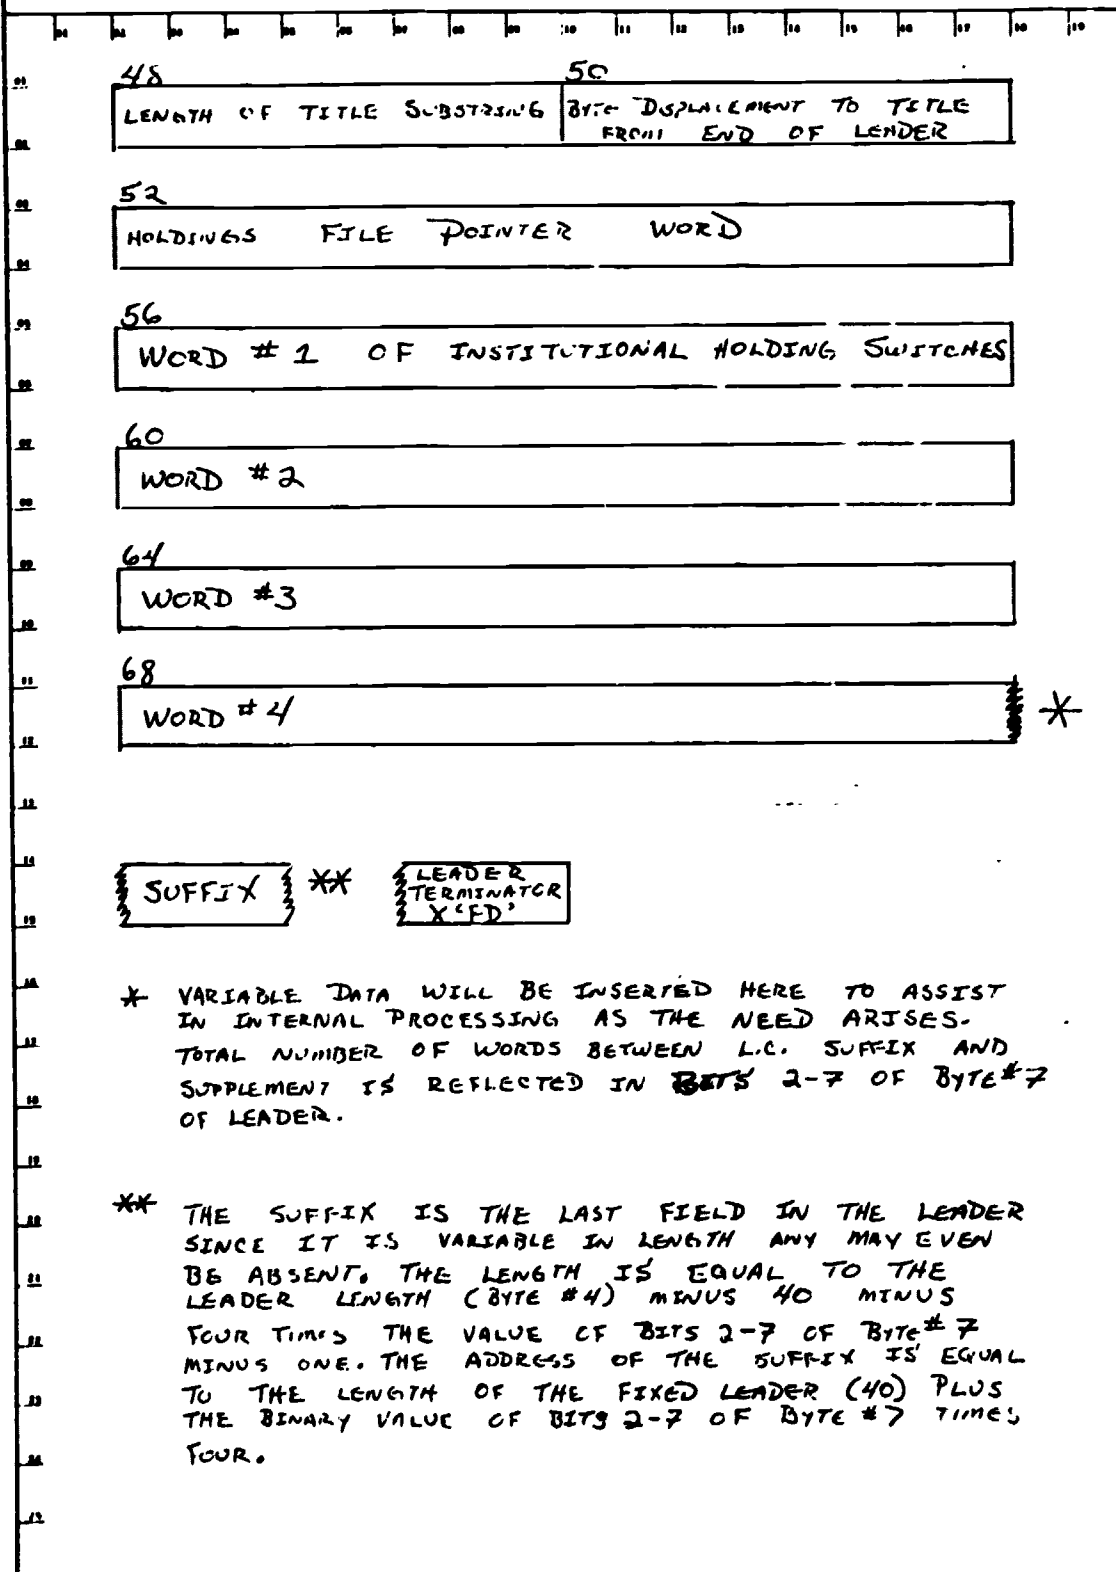 01 02 03 04 05 06 07 08 09 10 11 12 13 14 15 16 17 18 19
48 50
01
LENGTH OF TITLE SUBSTRING BYTE DISPLACEMENT TO TITLE
FROM END OF LEADER
02
52
03
HOLDINGS FILE POINTER WORD
04
56
05
WORD # 1 OF INSTITUTIONAL HOLDING SWITCHES
06
60
07
WORD # 2
08
64
09
WORD #3
10
68
11
WORD # 4 *
12
13
14
SUFFIX ** LEADER
TERMINATOR
X'FD'
15
16
* VARIABLE DATA WILL BE INSERTED HERE TO ASSIST
IN INTERNAL PROCESSING AS THE NEED ARISES.
17
TOTAL NUMBER OF WORDS BETWEEN L.C. SUFFIX AND
SUPPLEMENT IS REFLECTED IN BITS 2-7 OF BYTE #7
18
OF LEADER.
19
** THE SUFFIX IS THE LAST FIELD IN THE LEADER
20
SINCE IT IS VARIABLE IN LENGTH ANY MAY EVEN
BE ABSENT. THE LENGTH IS EQUAL TO THE
21
LEADER LENGTH (BYTE #4) MINUS 40 MINUS
FOUR TIMES THE VALUE OF BITS 2-7 OF BYTE # 7
22
MINUS ONE. THE ADDRESS OF THE SUFFIX IS EQUAL
TO THE LENGTH OF THE FIXED LEADER (40) PLUS
23
THE BINARY VALUE OF BITS 2-7 OF BYTE #7 TIMES
FOUR.
24